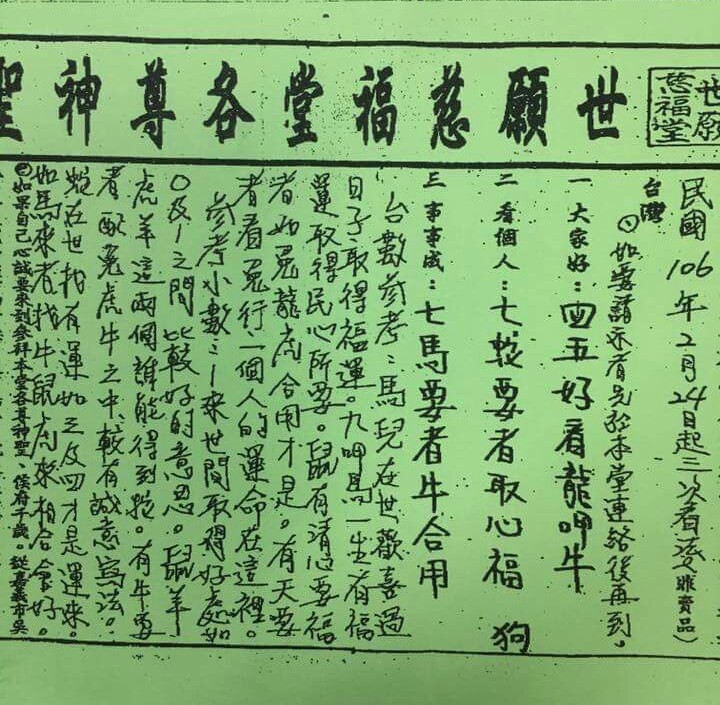 世願慈福堂各尊神聖
世願
慈福堂
民國106年2月24日起三次看淡(非賣品)
台灣
如要請示者先於本堂連絡後再到。
一 大家好：四五好看龍呷牛
二 看個人：七蛇要者取心福 狗
三 事事成：七馬要者牛合用
台數參考：馬兒在世歡喜過
日子取得福運。九呷馬一生有福
運取得民心所要。鼠有清心要福
者如兔龍虎合用才是。有天要
者看兔行一個人的運命在這裡。
參考小數：1來世間取得好處如
0及1之間比較好的意思。鼠羊
虎羊這兩個誰能得到。有牛要
者配兔虎牛之中，較有誠意寫法。
蛇在世找有運如三及四才是運來。
如馬來者找牛鼠虎來相合會好。
如果自己心誠要來到參拜本堂各尊神聖、侯府千歲。從嘉義市吳